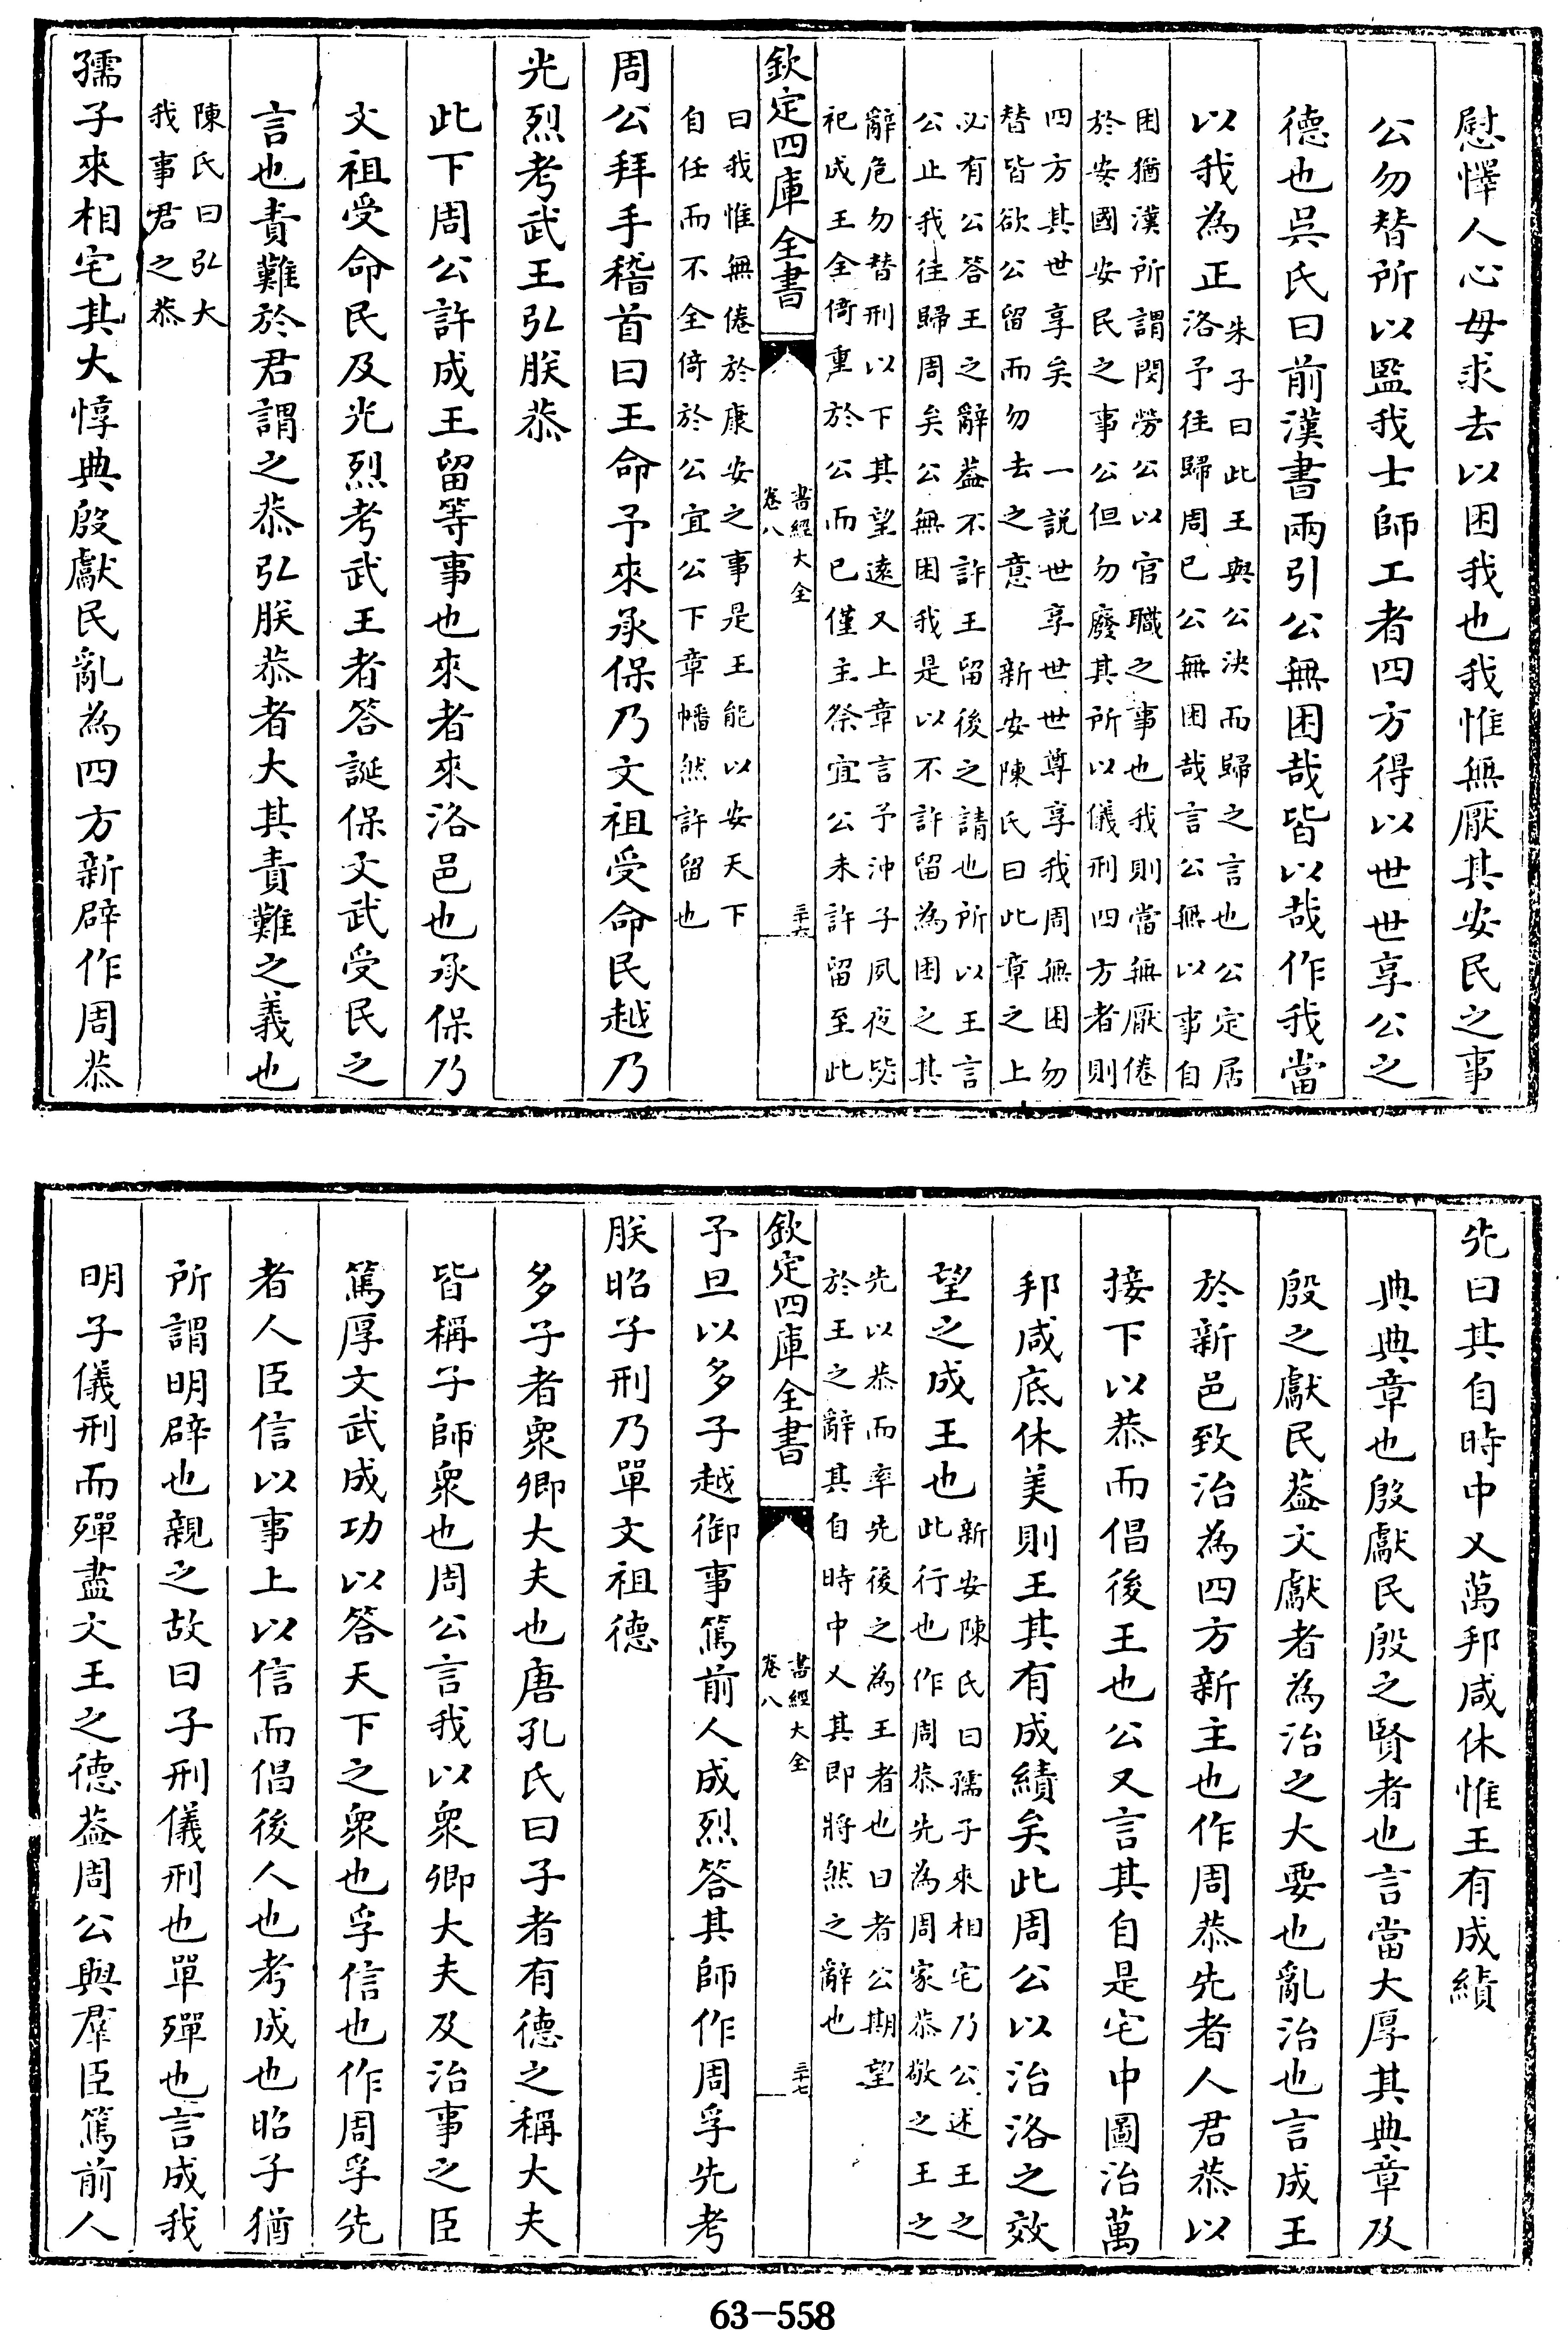 慰懌人心毋求去以困我也我惟無厭其安民之事
公勿替所以監我士師工者四方得以世世享公之
德也吳氏曰前漢書兩引公無困哉皆以哉作我當
以我為正
朱子曰此王與公決而歸之言也公定居
洛予往歸周已公無困哉言公無以事自
困猶漢所謂閔勞公以官職之事也我則當無厭倦
於安國安民之事公但勿廢其所以儀刑四方者則
四方其世享矣　一說世享世世尊享我周無困勿
替皆欲公留而勿去之意　新安陳氏曰此章之上
必有公答王之辭葢不許王留後之請也所以王言
公止我往歸周矣公無困我是以不許留為困之其
辭危勿替刑以下其望遠又上章言予沖子夙夜毖
祀成王全倚重於公而已僅主祭宜公未許留至此
欽定四庫全書
書經大全
卷八
三十六
曰我惟無倦於康安之事是王能以安天下
自任而不全倚於公宜公下章幡然許留也
周公拜手稽首曰王命予來承保乃文祖受命民越乃
光烈考武王弘朕恭
此下周公許成王留等事也來者來洛邑也承保乃
文祖受命民及光烈考武王者答誕保文武受民之
言也責難於君謂之恭弘朕恭者大其責難之義也
陳氏曰弘大
我事君之恭
孺子來相宅其大惇典殷獻民亂為四方新辟作周恭
先曰其自時中乂萬邦咸休惟王有成績
典典章也殷獻民殷之賢者也言當大厚其典章及
殷之獻民葢文獻者為治之大要也亂治也言成王
於新邑致治為四方新主也作周恭先者人君恭以
接下以恭而倡後王也公又言其自是宅中圖治萬
邦咸底休美則王其有成績矣此周公以治洛之效
望之成王也
新安陳氏曰孺子來相宅乃公述王之
此行也作周恭先為周家恭敬之王之
先以恭而率先後之為王者也曰者公期望
於王之辭其自時中乂其即將然之辭也
欽定四庫全書
書經大全
卷八
三十七
予旦以多子越御事篤前人成烈答其師作周孚先考
朕昭子刑乃單文祖德
多子者衆卿大夫也唐孔氏曰子者有德之稱大夫
皆稱子師衆也周公言我以衆卿大夫及治事之臣
篤厚文武成功以答天下之衆也孚信也作周孚先
者人臣信以事上以信而倡後人也考成也昭子猶
所謂明辟也親之故曰子刑儀刑也單殫也言成我
明子儀刑而殫盡文王之德葢周公與羣臣篤前人
63-558